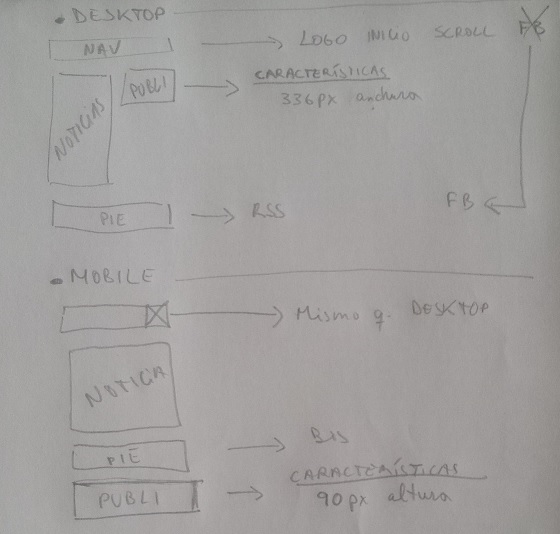 • DESKTOP
NAV → LOGO INICIO SCROLL FB
NOTICIAS
PUBLI → CARACTERÍSTICAS
336px anchura
FB
PIE → RSS
• MOBILE
Mismo q. DESKTOP
NOTICIA
PIE → BIS
PUBLI → CARACTERÍSTICAS
90px altura